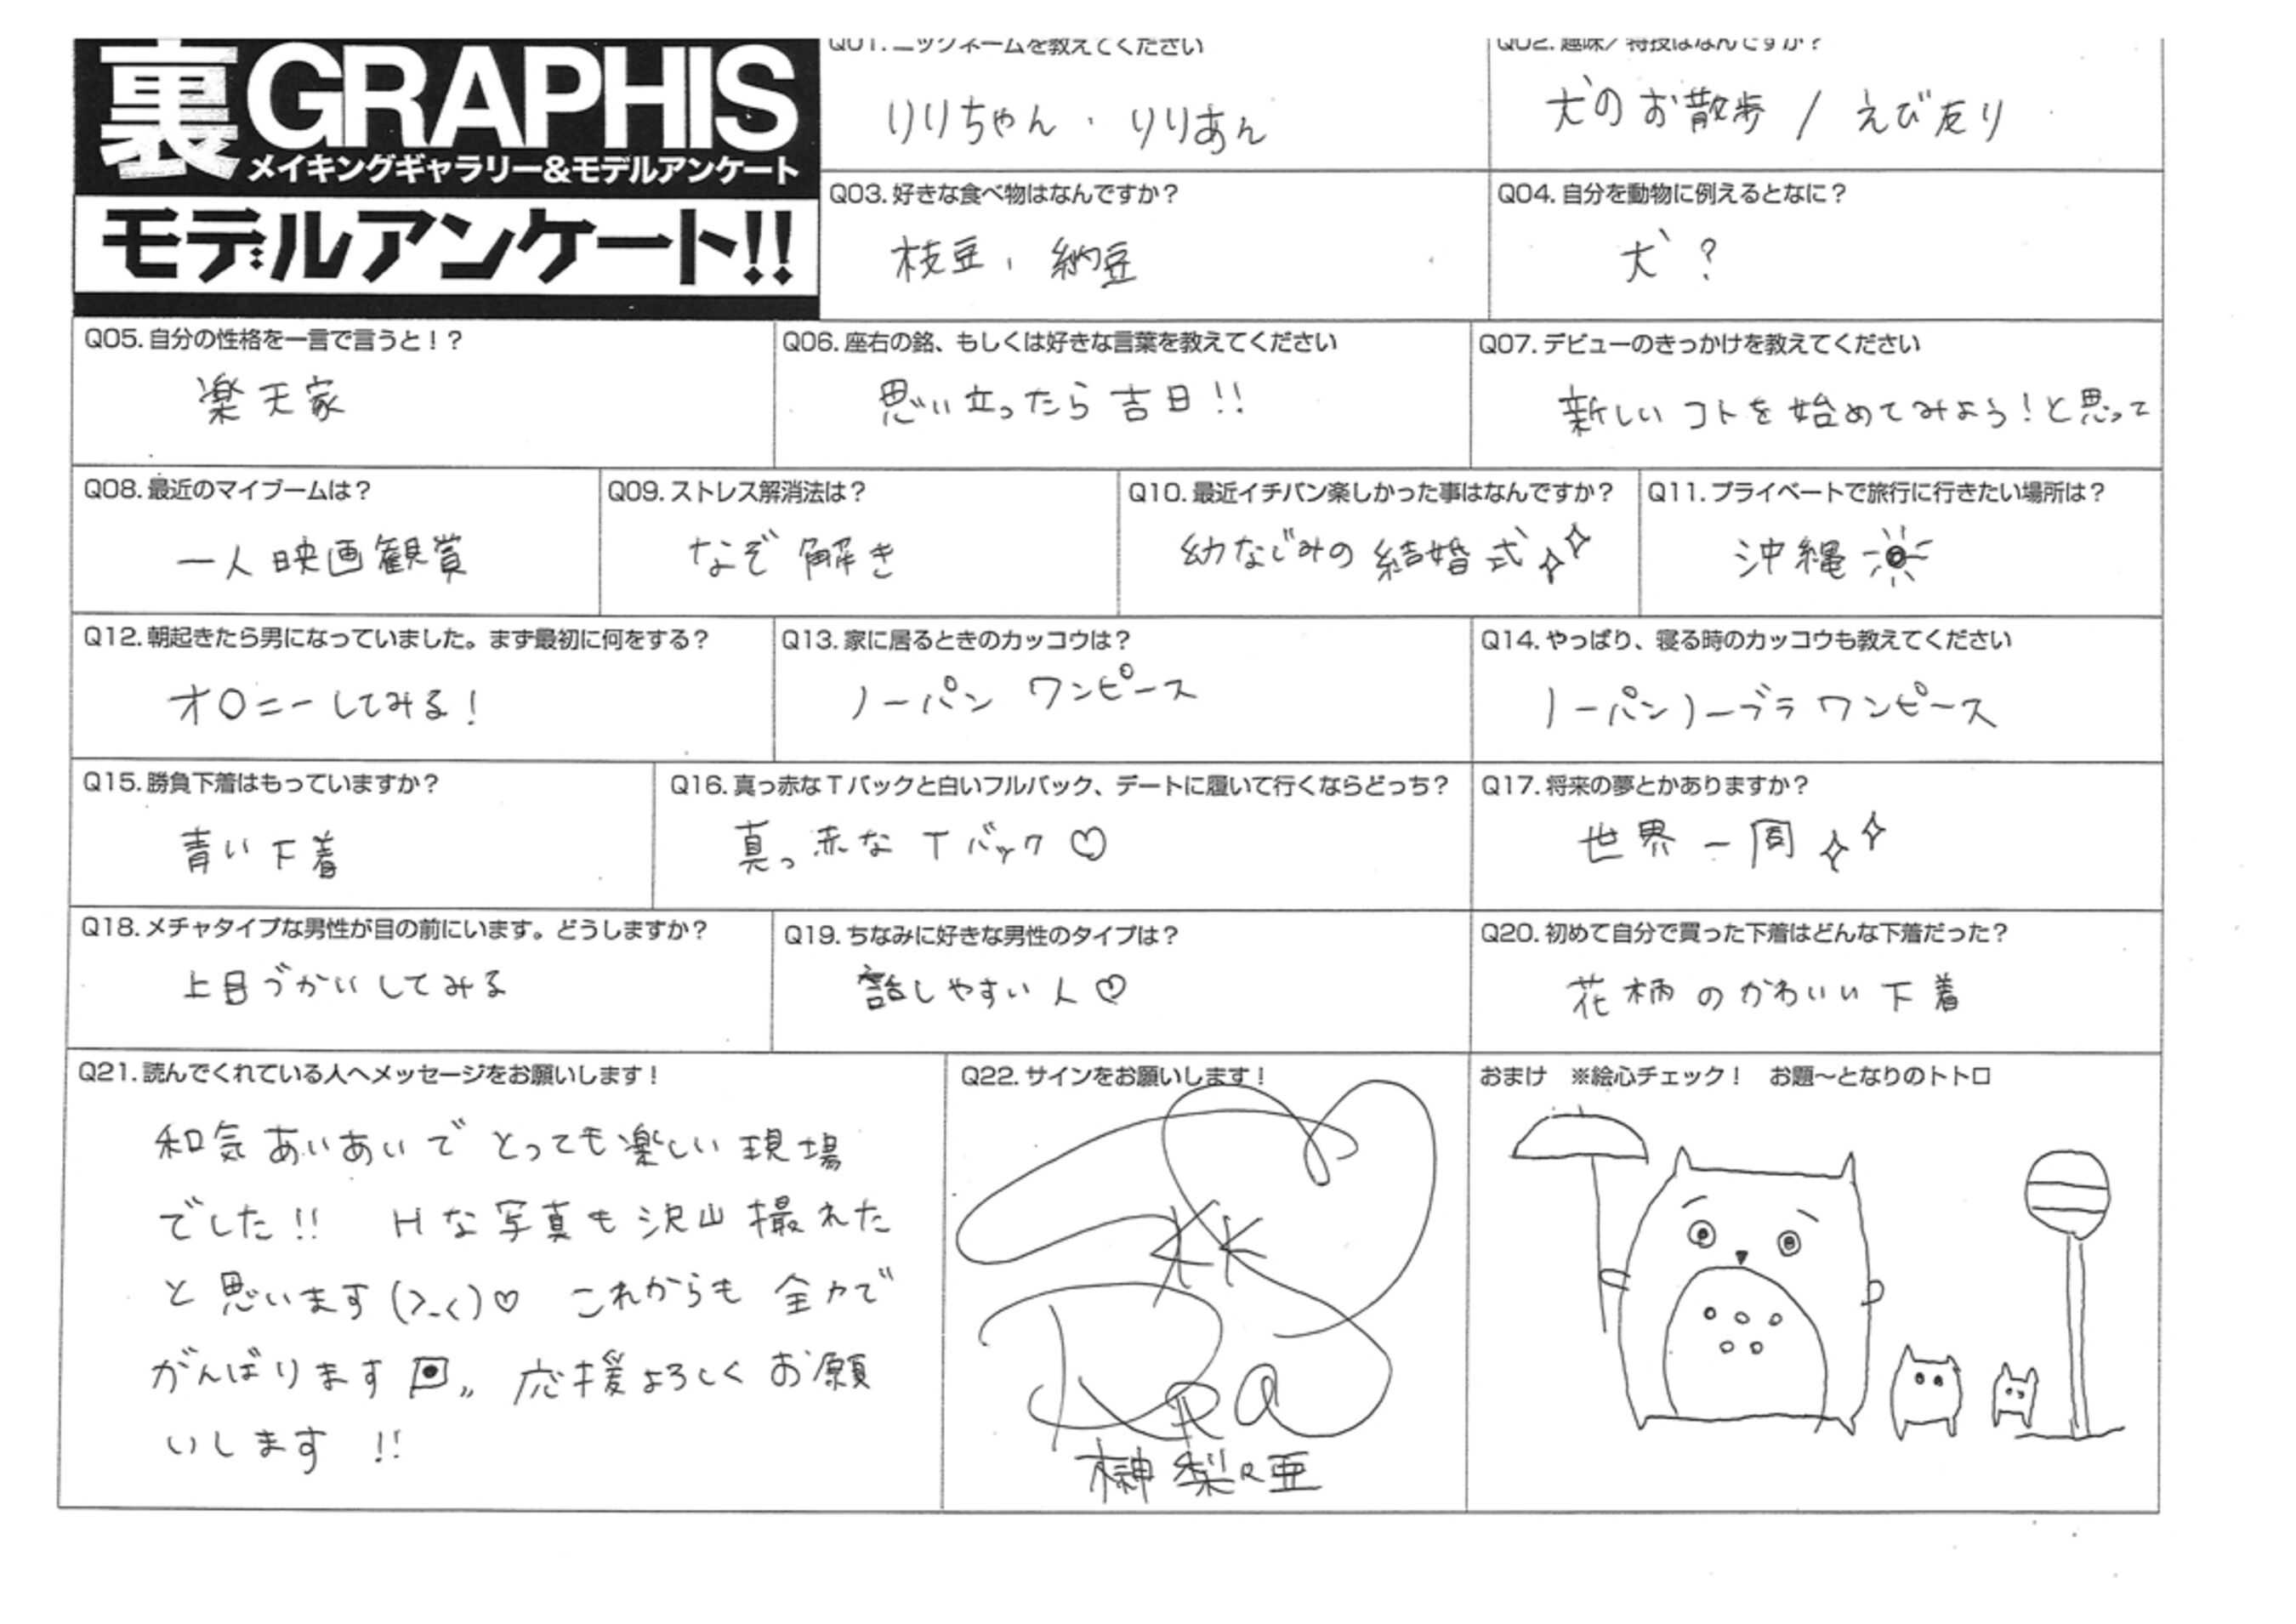 裏GRAPHIS
メイキングギャラリー&モデルアンケート
モデルアンケート!!
Q01.ニックネームを教えてください
りりちゃん、りりあん
Q02.趣味/特技はなんですか?
犬のお散歩 / えび反り
Q03.好きな食べ物はなんですか?
枝豆、納豆
Q04.自分を動物に例えるとなに?
犬?
Q05.自分の性格を一言で言うと!?
楽天家
Q06.座右の銘、もしくは好きな言葉を教えてください
思い立ったら吉日!!
Q07.デビューのきっかけを教えてください
新しいコトを始めてみよう!と思って
Q08.最近のマイブームは?
一人映画観賞
Q09.ストレス解消法は?
なぞ解き
Q10.最近イチバン楽しかった事はなんですか?
幼なじみの結婚式
Q11.プライベートで旅行に行きたい場所は?
沖縄
Q12.朝起きたら男になっていました。まず最初に何をする?
オ○ニーしてみる!
Q13.家に居るときのカッコウは?
ノーパン ワンピース
Q14.やっぱり、寝る時のカッコウも教えてください
ノーパンノーブラ ワンピース
Q15.勝負下着はもっていますか?
青い下着
Q16.真っ赤なTバックと白いフルバック、デートに履いて行くならどっち?
真っ赤なTバック♡
Q17.将来の夢とかありますか?
世界一周
Q18.メチャタイプな男性が目の前にいます。どうしますか?
上目づかいしてみる
Q19.ちなみに好きな男性のタイプは?
話しやすい人♡
Q20.初めて自分で買った下着はどんな下着だった?
花柄のかわいい下着
Q21.読んでくれている人へメッセージをお願いします!
和気あいあいでとっても楽しい現場
でした!! Hな写真も沢山撮れた
と思います(>_<)♡ これからも全力で
がんばります 応援よろしくお願
いします!!
Q22.サインをお願いします!
榊梨々亜
おまけ ※絵心チェック! お題〜となりのトトロ